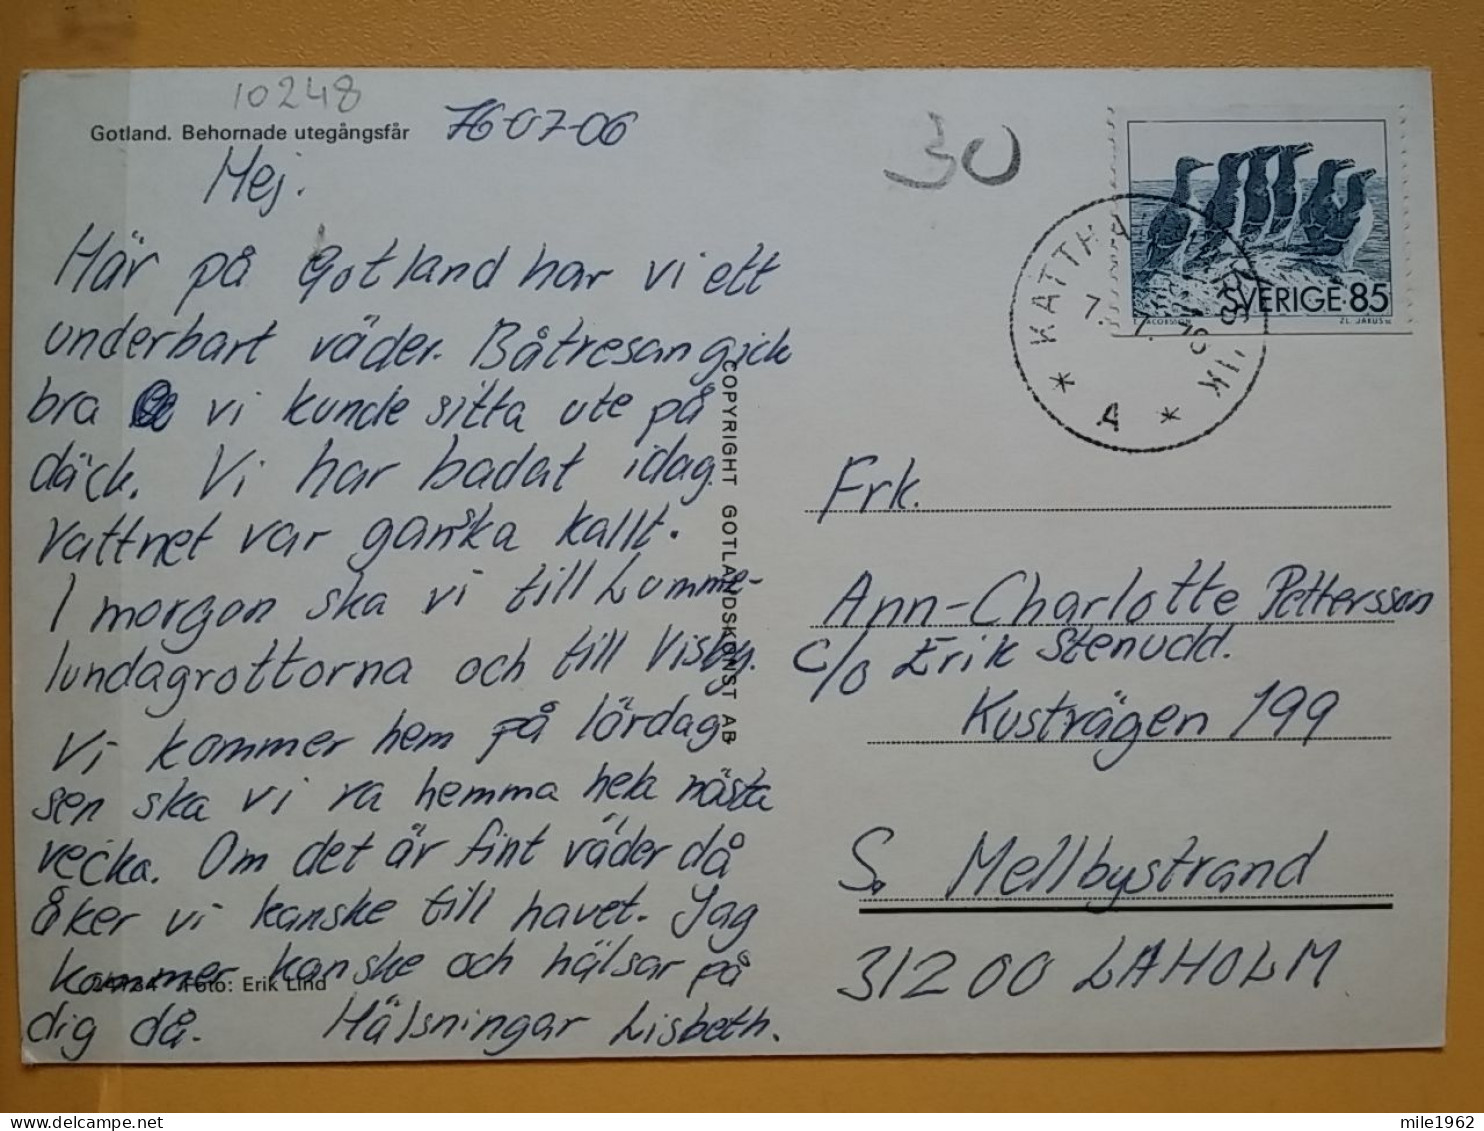 10248
Gotland. Behornade utegångsfår
76-07-06
Hej.
Här på Gotland har vi ett
underbart väder. Båtresan gick
bra vi kunde sitta ute på
däck. Vi har badat idag.
Vattnet var ganska kallt.
I morgon ska vi till Lumme-
lundagrottorna och till Visby.
Vi kommer hem på lördag.
sen ska vi va hemma hela nästa
vecka. Om det är fint väder då
åker vi kanske till havet. Jag
kommer kanske och hälsar på
dig då. Hälsningar Lisbeth.
Foto: Erik Lind
COPYRIGHT GOTLANDSKONST AB
30
SVERIGE 85
* KATTHA VIK *
A
Frk.
Ann-Charlotte Pettersson
c/o Erik Stenudd.
Kustvägen 199
S. Mellbystrand
31200 LAHOLM
mile1962